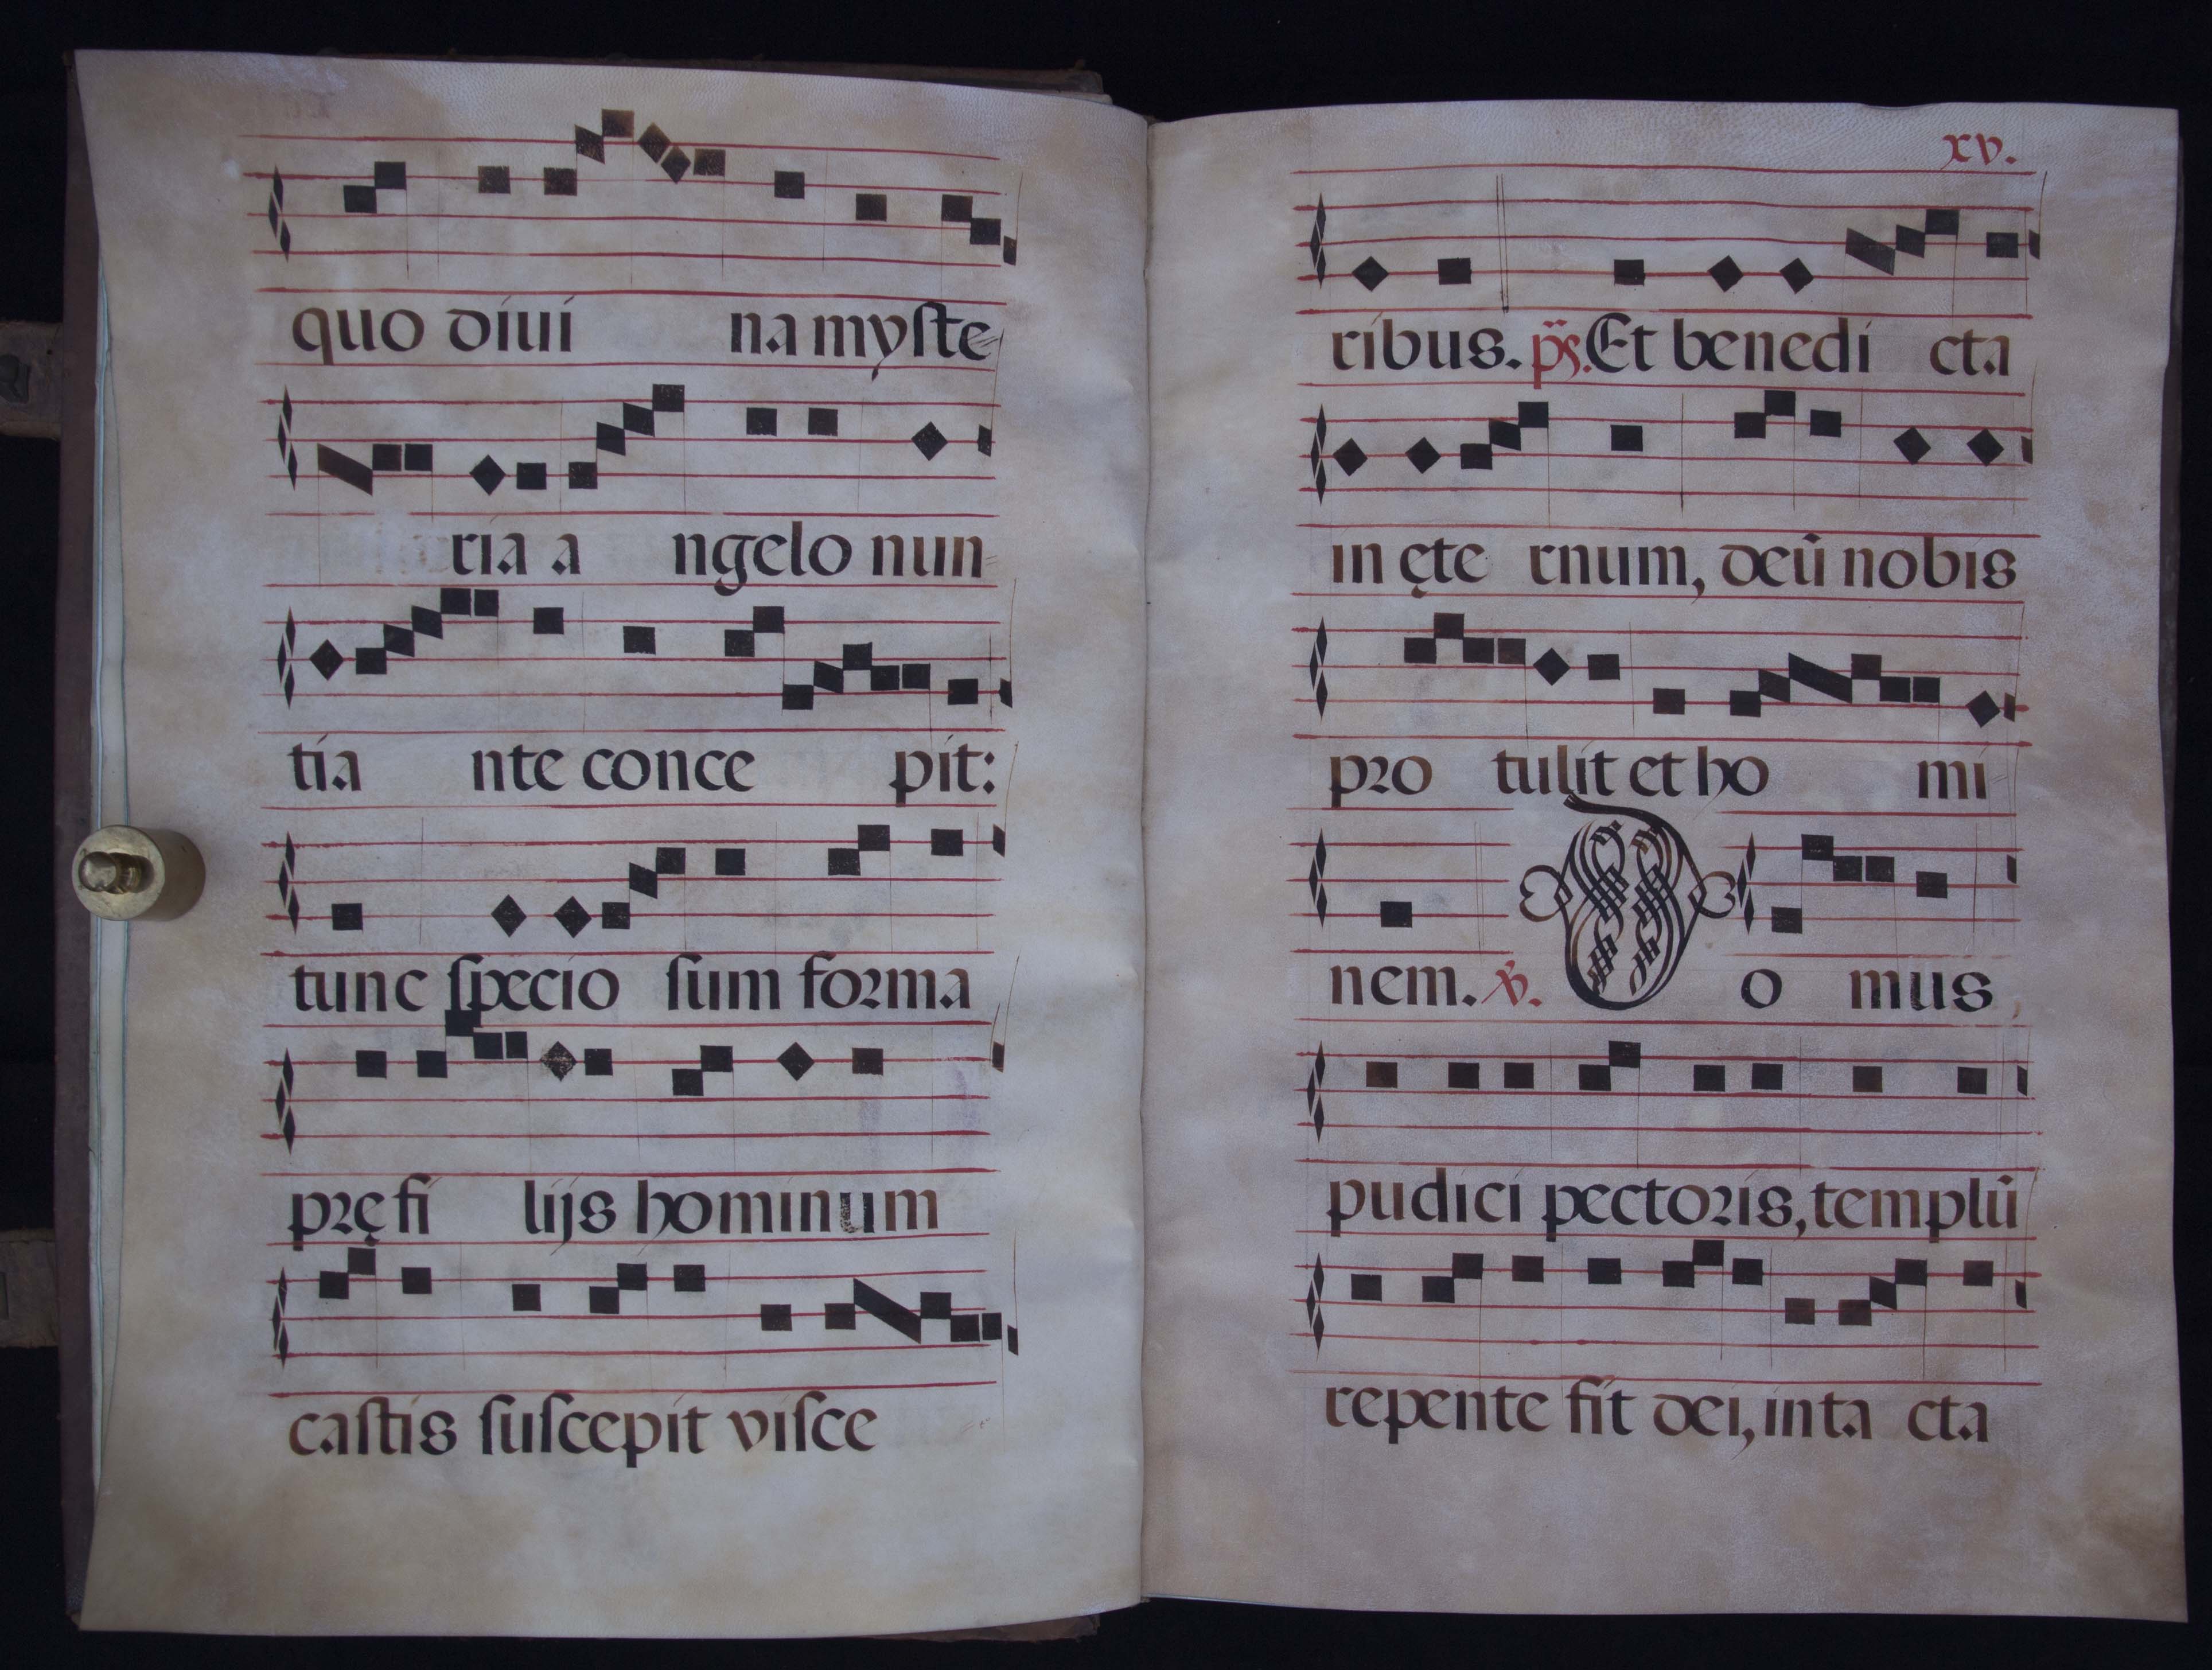 quo diui na myſte-
ria a ngelo nun-
tia nte conce pit:
tunc ſpecio ſum forma
pręfi lijs hominum
caſtis ſuſcepit viſce
xv.
ribus. ps. Et benedi cta
in ęte rnum, deū nobis
pro tulit et ho mi-
nem. v. D o mus
pudici pectoris, templū
repente fit dei, inta cta